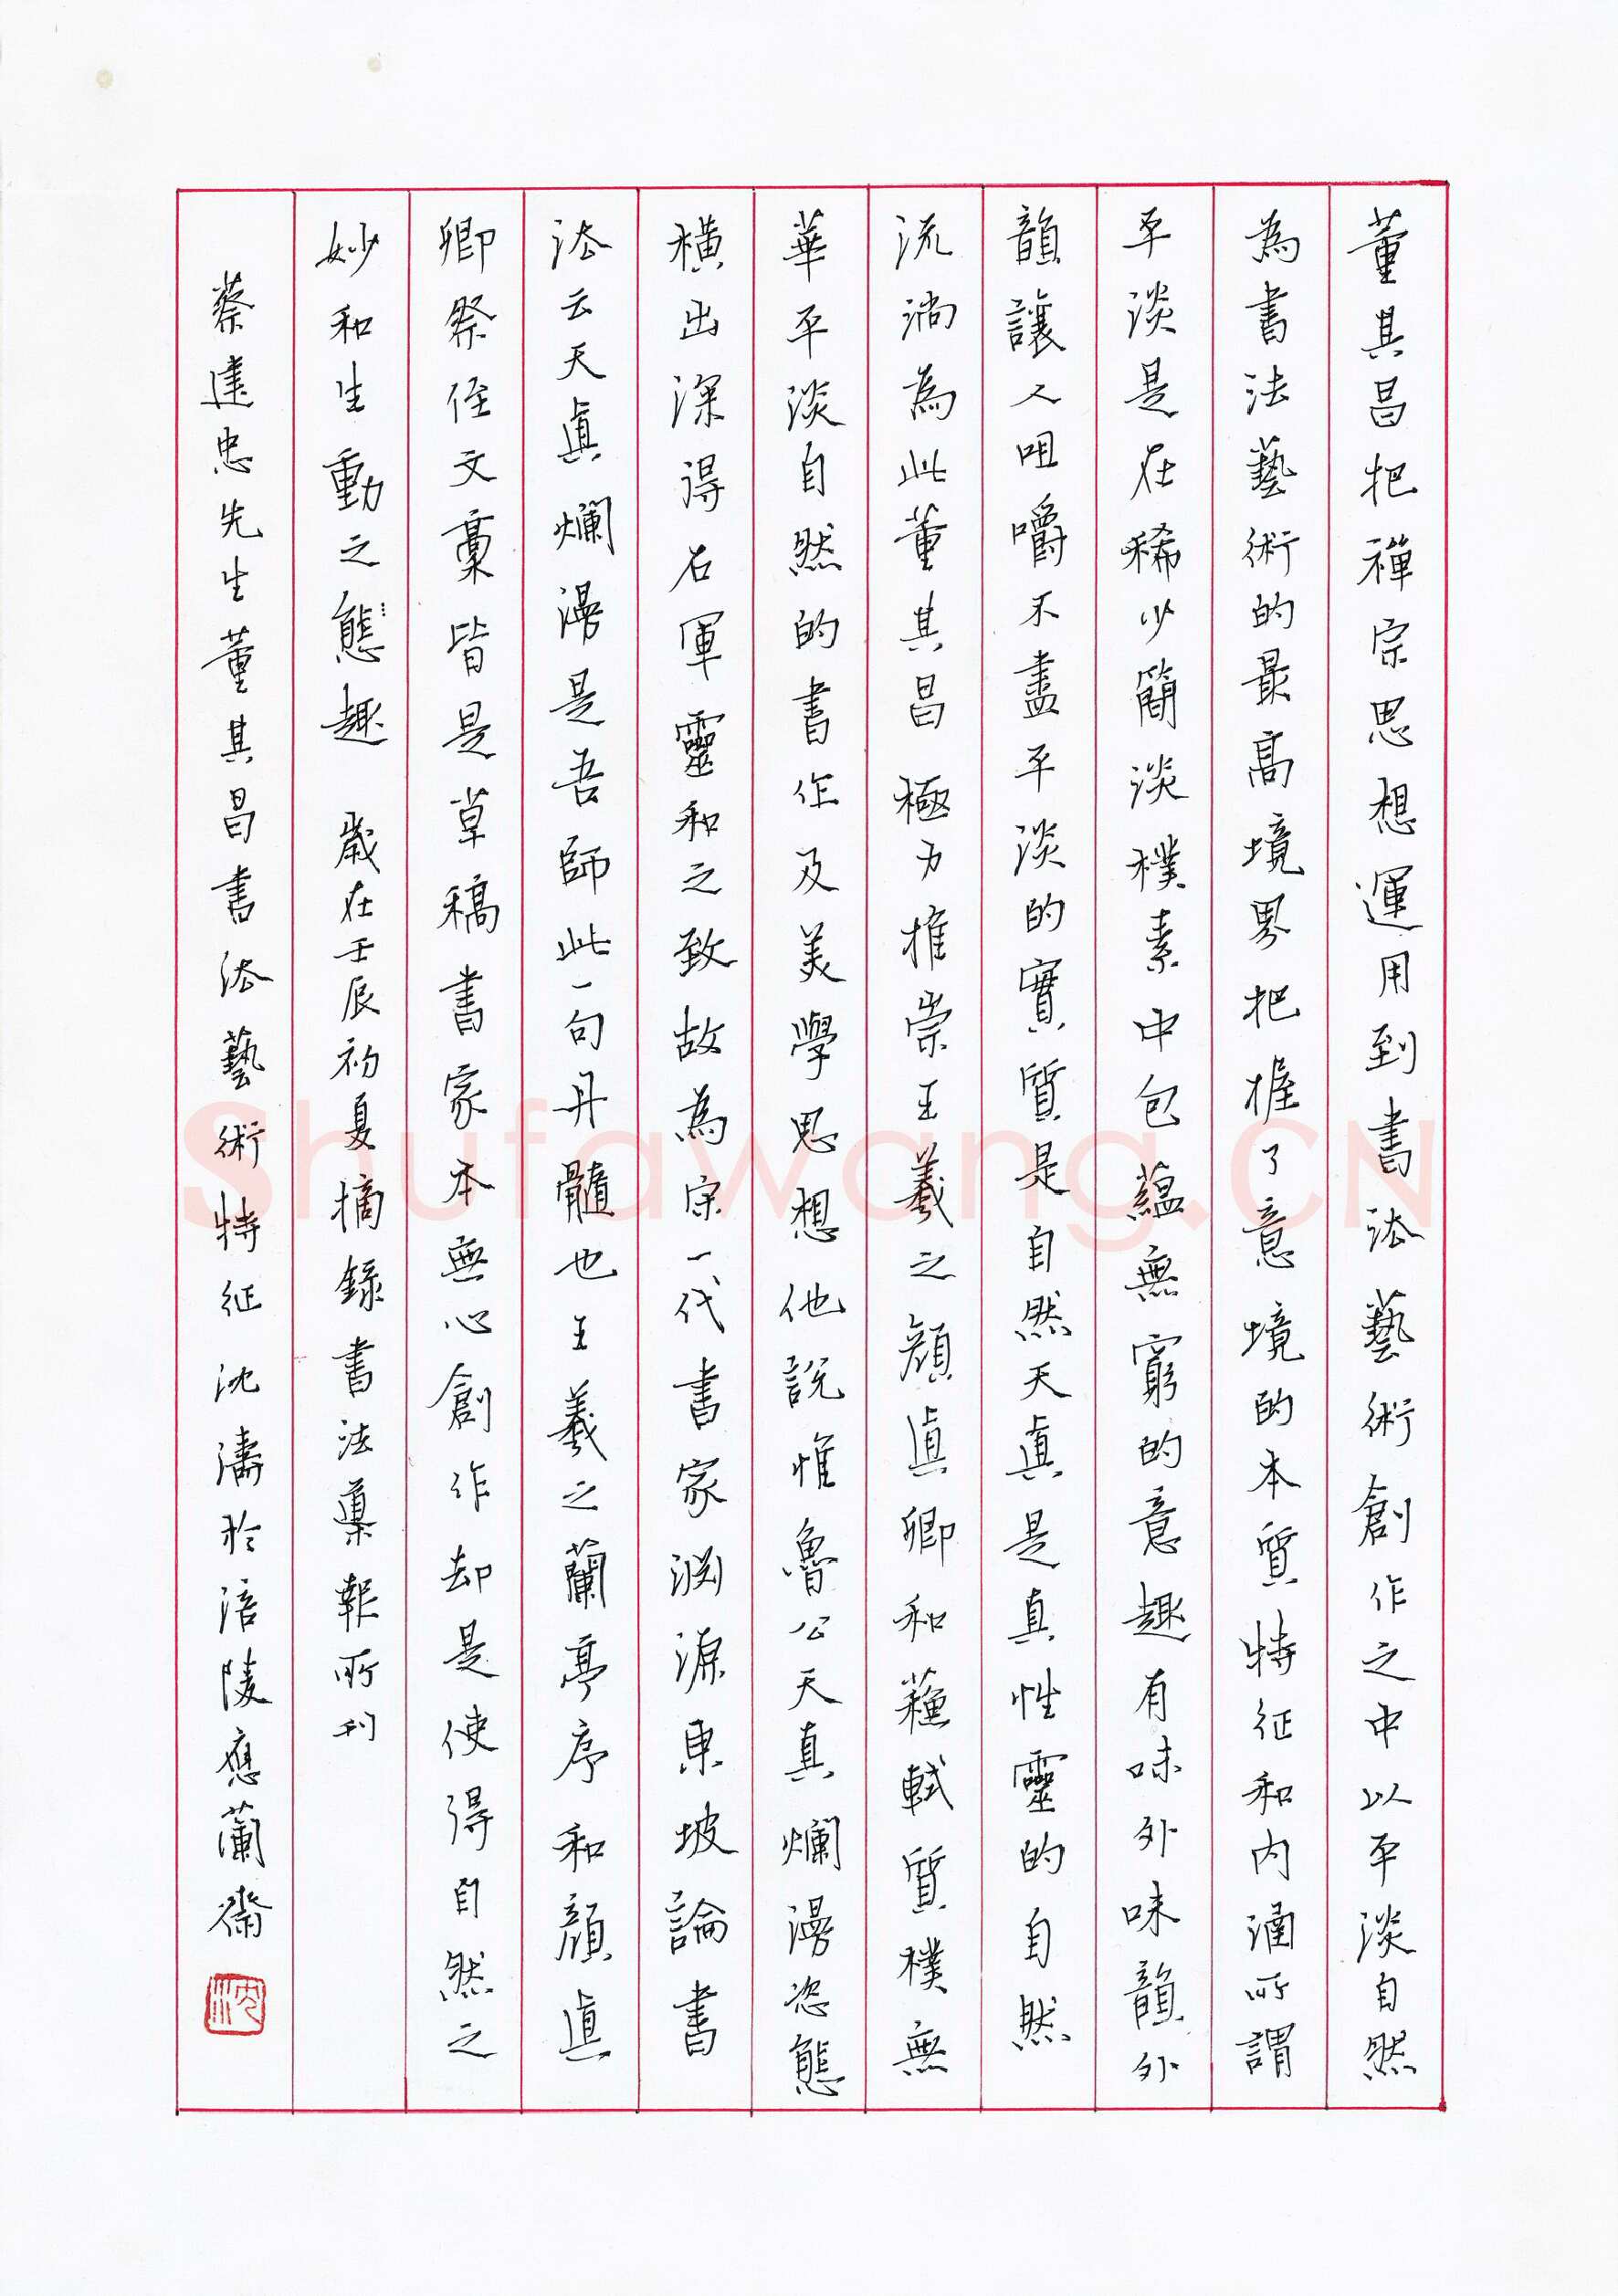 董其昌把禪宗思想運用到書法藝術創作之中以平淡自然
為書法藝術的最高境界把握了意境的本質特征和内涵所謂
平淡是在稀少簡淡樸素中包蘊無窮的意趣有味外味韻外
韻讓人咀嚼不盡平淡的實質是自然天真是真性靈的自然
流淌為此董其昌極力推崇王羲之顔真卿和蘇軾質樸無
華平淡自然的書作及美學思想他説惟魯公天真爛漫恣態
橫出深得右軍靈和之致故為宋一代書家淵源東坡論書
法云天真爛漫是吾師此一句丹髓也王羲之蘭亭序和顔真
卿祭侄文稾皆是草稿書家本無心創作却是使得自然之
妙和生動之態趣 歲在壬辰初夏摘錄書法導報所刊
蔡達忠先生董其昌書法藝術特征 沈濤於涪陵應蘭齋
沈
Shufawang.CN